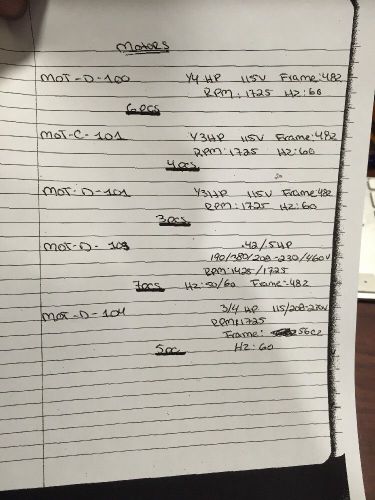 Motors
MOT-D-100 1/4 HP 115V Frame:48Z
RPM: 1725 Hz: 60
6pcs
MOT-C-101 1/3HP 115V Frame:48Z
RPM: 1725 Hz: 60
4pcs
MOT-D-101 1/3HP 115V Frame:48Z
RPM: 1725 Hz: 60
3pcs
MOT-D-103 .42/.5HP
190/380/208-230/460V
RPM: 1425/1725
7pcs Hz: 50/60 Frame-48Z
MOT-D-104 3/4 HP 115/208-230V
RPM: 1725
Frame: 56CZ
5pc Hz: 60